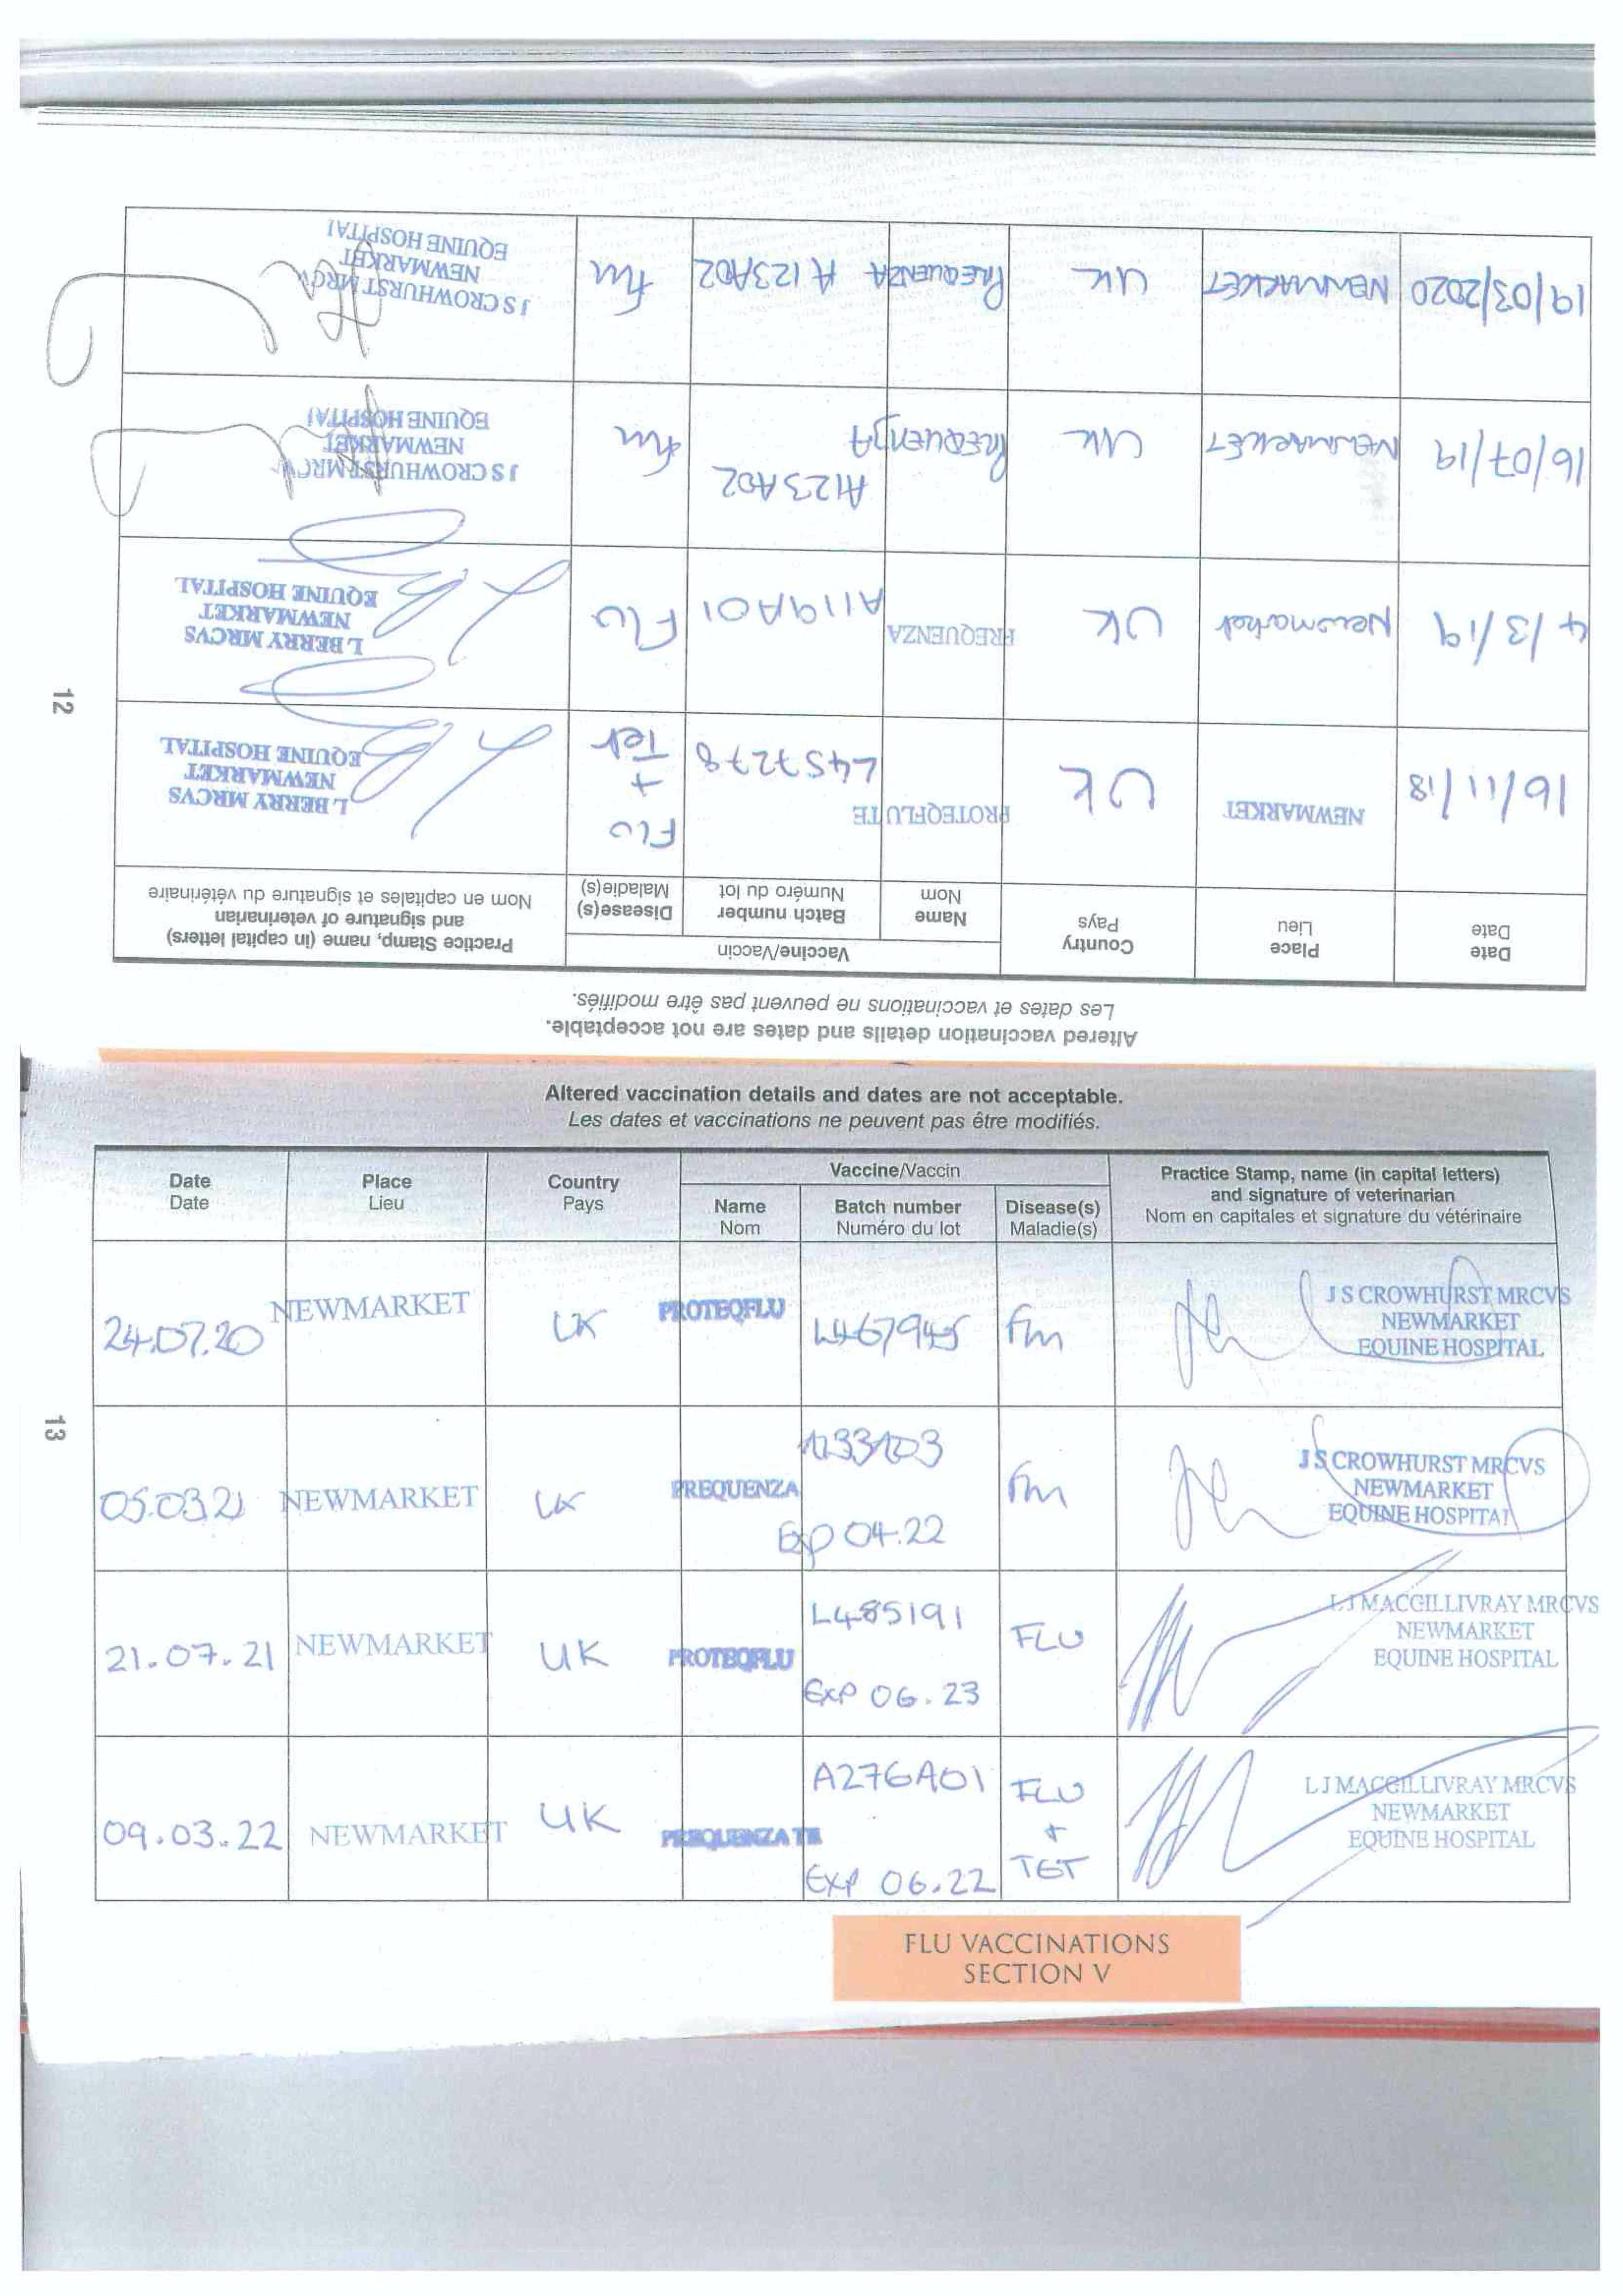 12
Altered vaccination details and dates are not acceptable.
Les dates et vaccinations ne peuvent pas être modifiés.
Date Place Country Vaccine/Vaccin Practice Stamp, name (in capital letters)
Date Lieu Pays Name Batch number Disease(s) and signature of veterinarian
Nom Numéro du lot Maladie(s) Nom en capitales et signature du vétérinaire
16/11/18 NEWMARKET UK PROTEQFLU TE L457278 FLU + Tet L BERRY MRCVS
NEWMARKET
EQUINE HOSPITAL
4/3/19 Newmarket UK PREQUENZA A119A01 FLU L BERRY MRCVS
NEWMARKET
EQUINE HOSPITAL
16/07/19 NEWMARKET UK PREQUENZA A123A02 J S CROWHURST MRCVS
NEWMARKET
EQUINE HOSPITAL
19/03/2020 NEWMARKET UK PREQUENZA A123A02 J S CROWHURST MRCVS
NEWMARKET
EQUINE HOSPITAL
13
Altered vaccination details and dates are not acceptable.
Les dates et vaccinations ne peuvent pas être modifiés.
Date Place Country Vaccine/Vaccin Practice Stamp, name (in capital letters)
Date Lieu Pays Name Batch number Disease(s) and signature of veterinarian
Nom Numéro du lot Maladie(s) Nom en capitales et signature du vétérinaire
24.07.20 NEWMARKET UK PROTEQFLU L467945 J S CROWHURST MRCVS
NEWMARKET
EQUINE HOSPITAL
05.03.21 NEWMARKET UK PREQUENZA J S CROWHURST MRCVS
Exp 04.22 NEWMARKET
EQUINE HOSPITAL
21.07.21 NEWMARKET UK PROTEQFLU L485191 FLU L J MACGILLIVRAY MRCVS
EXP 06.23 NEWMARKET
EQUINE HOSPITAL
09.03.22 NEWMARKET UK PREQUENZA TE A276A01 FLU + TET L J MACGILLIVRAY MRCVS
EXP 06.22 NEWMARKET
EQUINE HOSPITAL
FLU VACCINATIONS
SECTION V